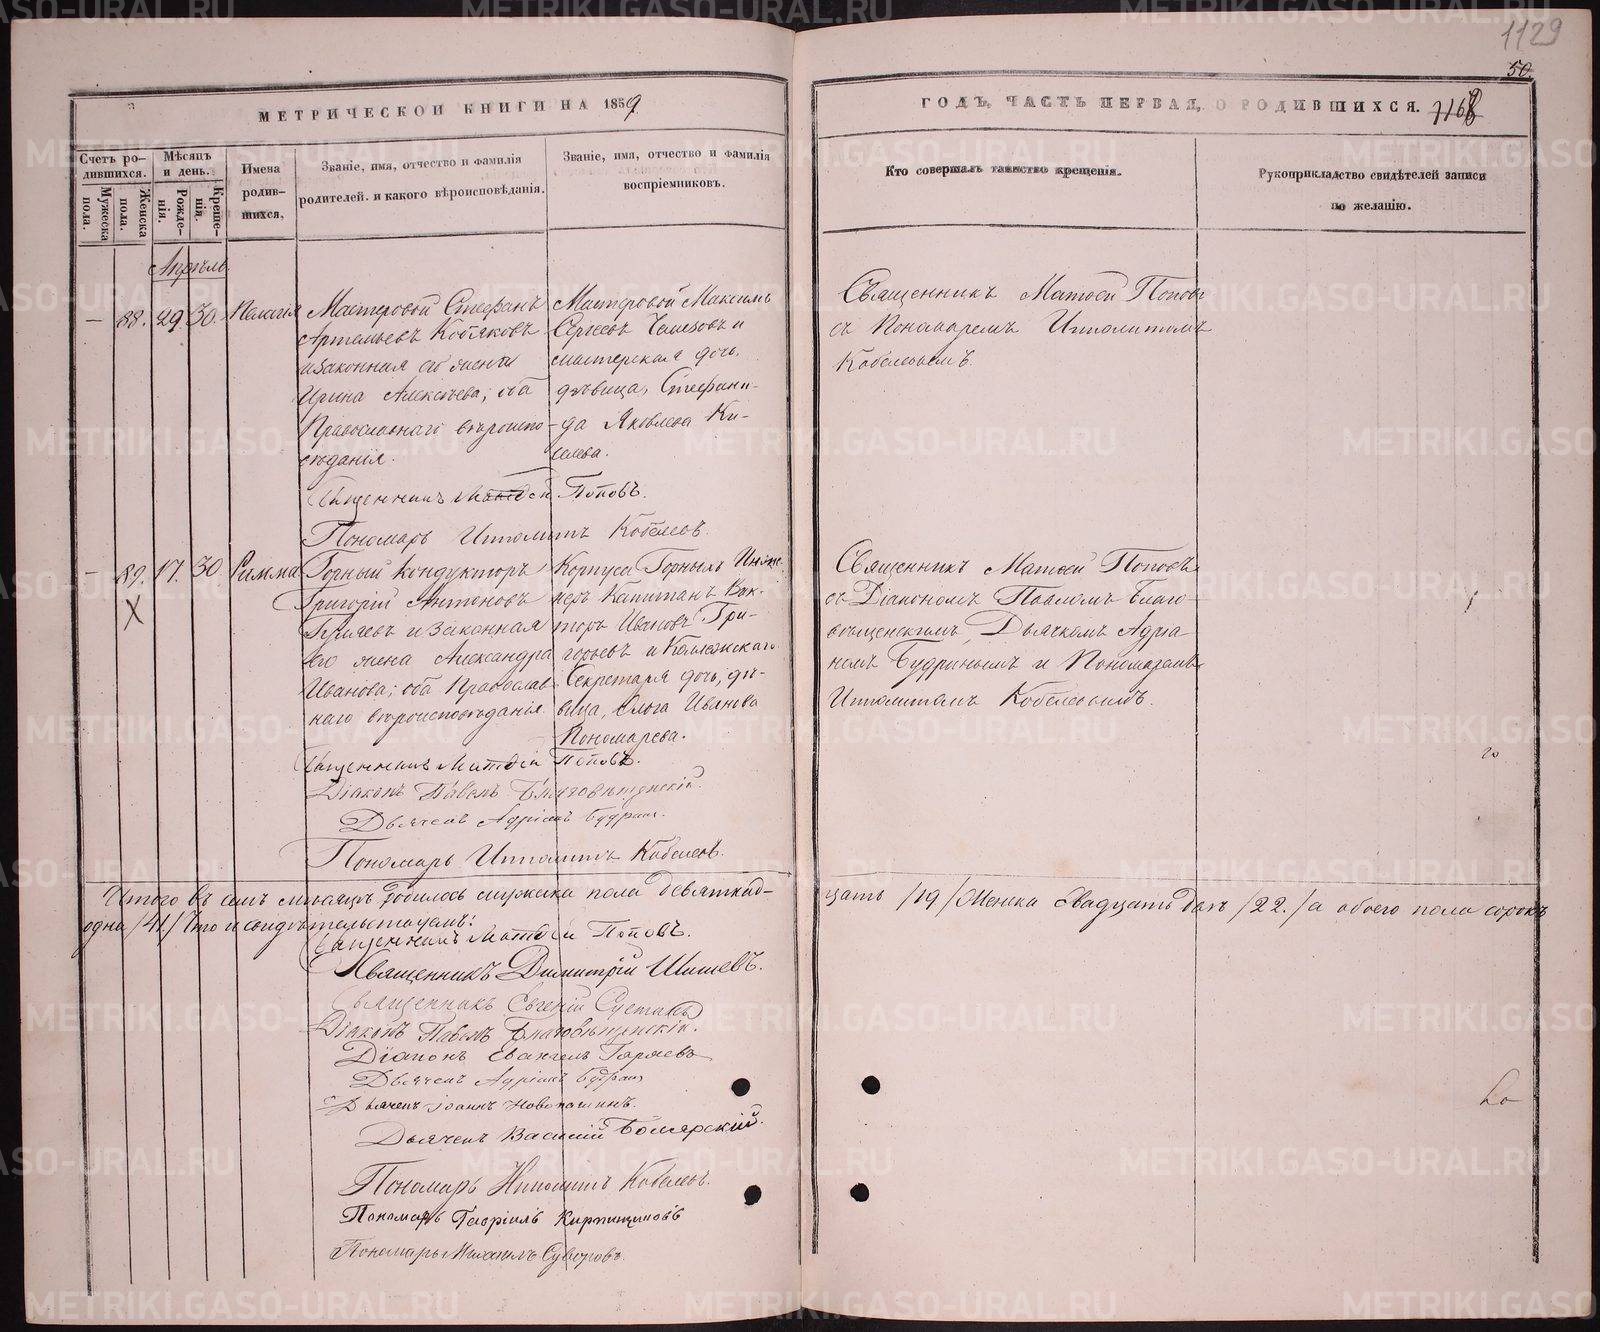 1129
50
МЕТРИЧЕСКОЙ КНИГИ НА 1859
ГОДЪ, ЧАСТЬ ПЕРВАЯ, О РОДИВШИХСЯ. 1168
Счетъ родившихся.
Мужеска пола.
Женска пола.
Мѣсяцъ и день.
Рожденія.
Крещенія.
Имена родившихся.
Званіе, имя, отчество и фамилія родителей. и какого вѣроисповѣданія.
Званіе, имя, отчество и фамилія воспріемниковъ.
Кто совершалъ таинство крещенія.
Рукоприкладство свидѣтелей записи по желанію.
Апрѣль.
— 88. 29 30. Пелагія
Мастеровой Стефанъ
Артемьевъ Кобяковъ
и законная его жена
Ирина Алексѣева, оба
Православнаго вѣроиспо-
вѣданія.
Мастеровой Максимъ
Сергѣевъ и
мастерская дочь,
дѣвица, Стефани-
да Яковлева Ки-
селева.
Священникъ Матѳей Поповъ
съ Пономаремъ Ипполитомъ
Кобелевымъ.
Священникъ Матѳей Поповъ.
Пономарь Ипполитъ Кобелевъ.
— 89. 17. 30 Римма
X
Горный кондукторъ
Григорій Антоновъ
и законная
его жена Александра
Иванова; оба Православ-
наго вѣроисповѣданія.
Корпуса Горныхъ Инже-
неръ Капитанъ Вик-
торъ Ивановъ Гри-
горьевъ и Коллежскаго
Секретаря дочь, дѣ-
вица, Ольга Иванова
Пономарева.
Священникъ Матѳей Поповъ
съ Діакономъ Павломъ Благо-
вѣщенскимъ, Дьячкомъ Адріа-
номъ Будринымъ и Пономаремъ
Ипполитомъ Кобелевымъ.
Священникъ Матѳей Поповъ.
Діаконъ Павелъ Благовѣщенскій.
Дьячекъ Адріанъ Будринъ.
Пономарь Ипполитъ Кобелевъ.
Итого въ семъ мѣсяцѣ родилось мужеска пола девятнад-
цать /19/ Женска двадцать двѣ /22./ а обоего пола сорокъ
одна /41/ Что и свидѣтельствуемъ:
Священникъ Матѳей Поповъ.
Священникъ Димитрій Шишевъ.
Священникъ Евгеній
Діаконъ Павелъ Благовѣщенскій.
Діаконъ Евангелъ Гаряевъ
Дьячекъ Адріанъ Будринъ
Дьячекъ Іоаннъ Новопашинъ.
Дьячекъ Василій Боярскій.
Пономарь Ипполитъ Кобелевъ.
Пономарь Гавріилъ Кирпищиковъ
Пономарь Михаилъ Суворовъ.
METRIKI.GASO-URAL.RU